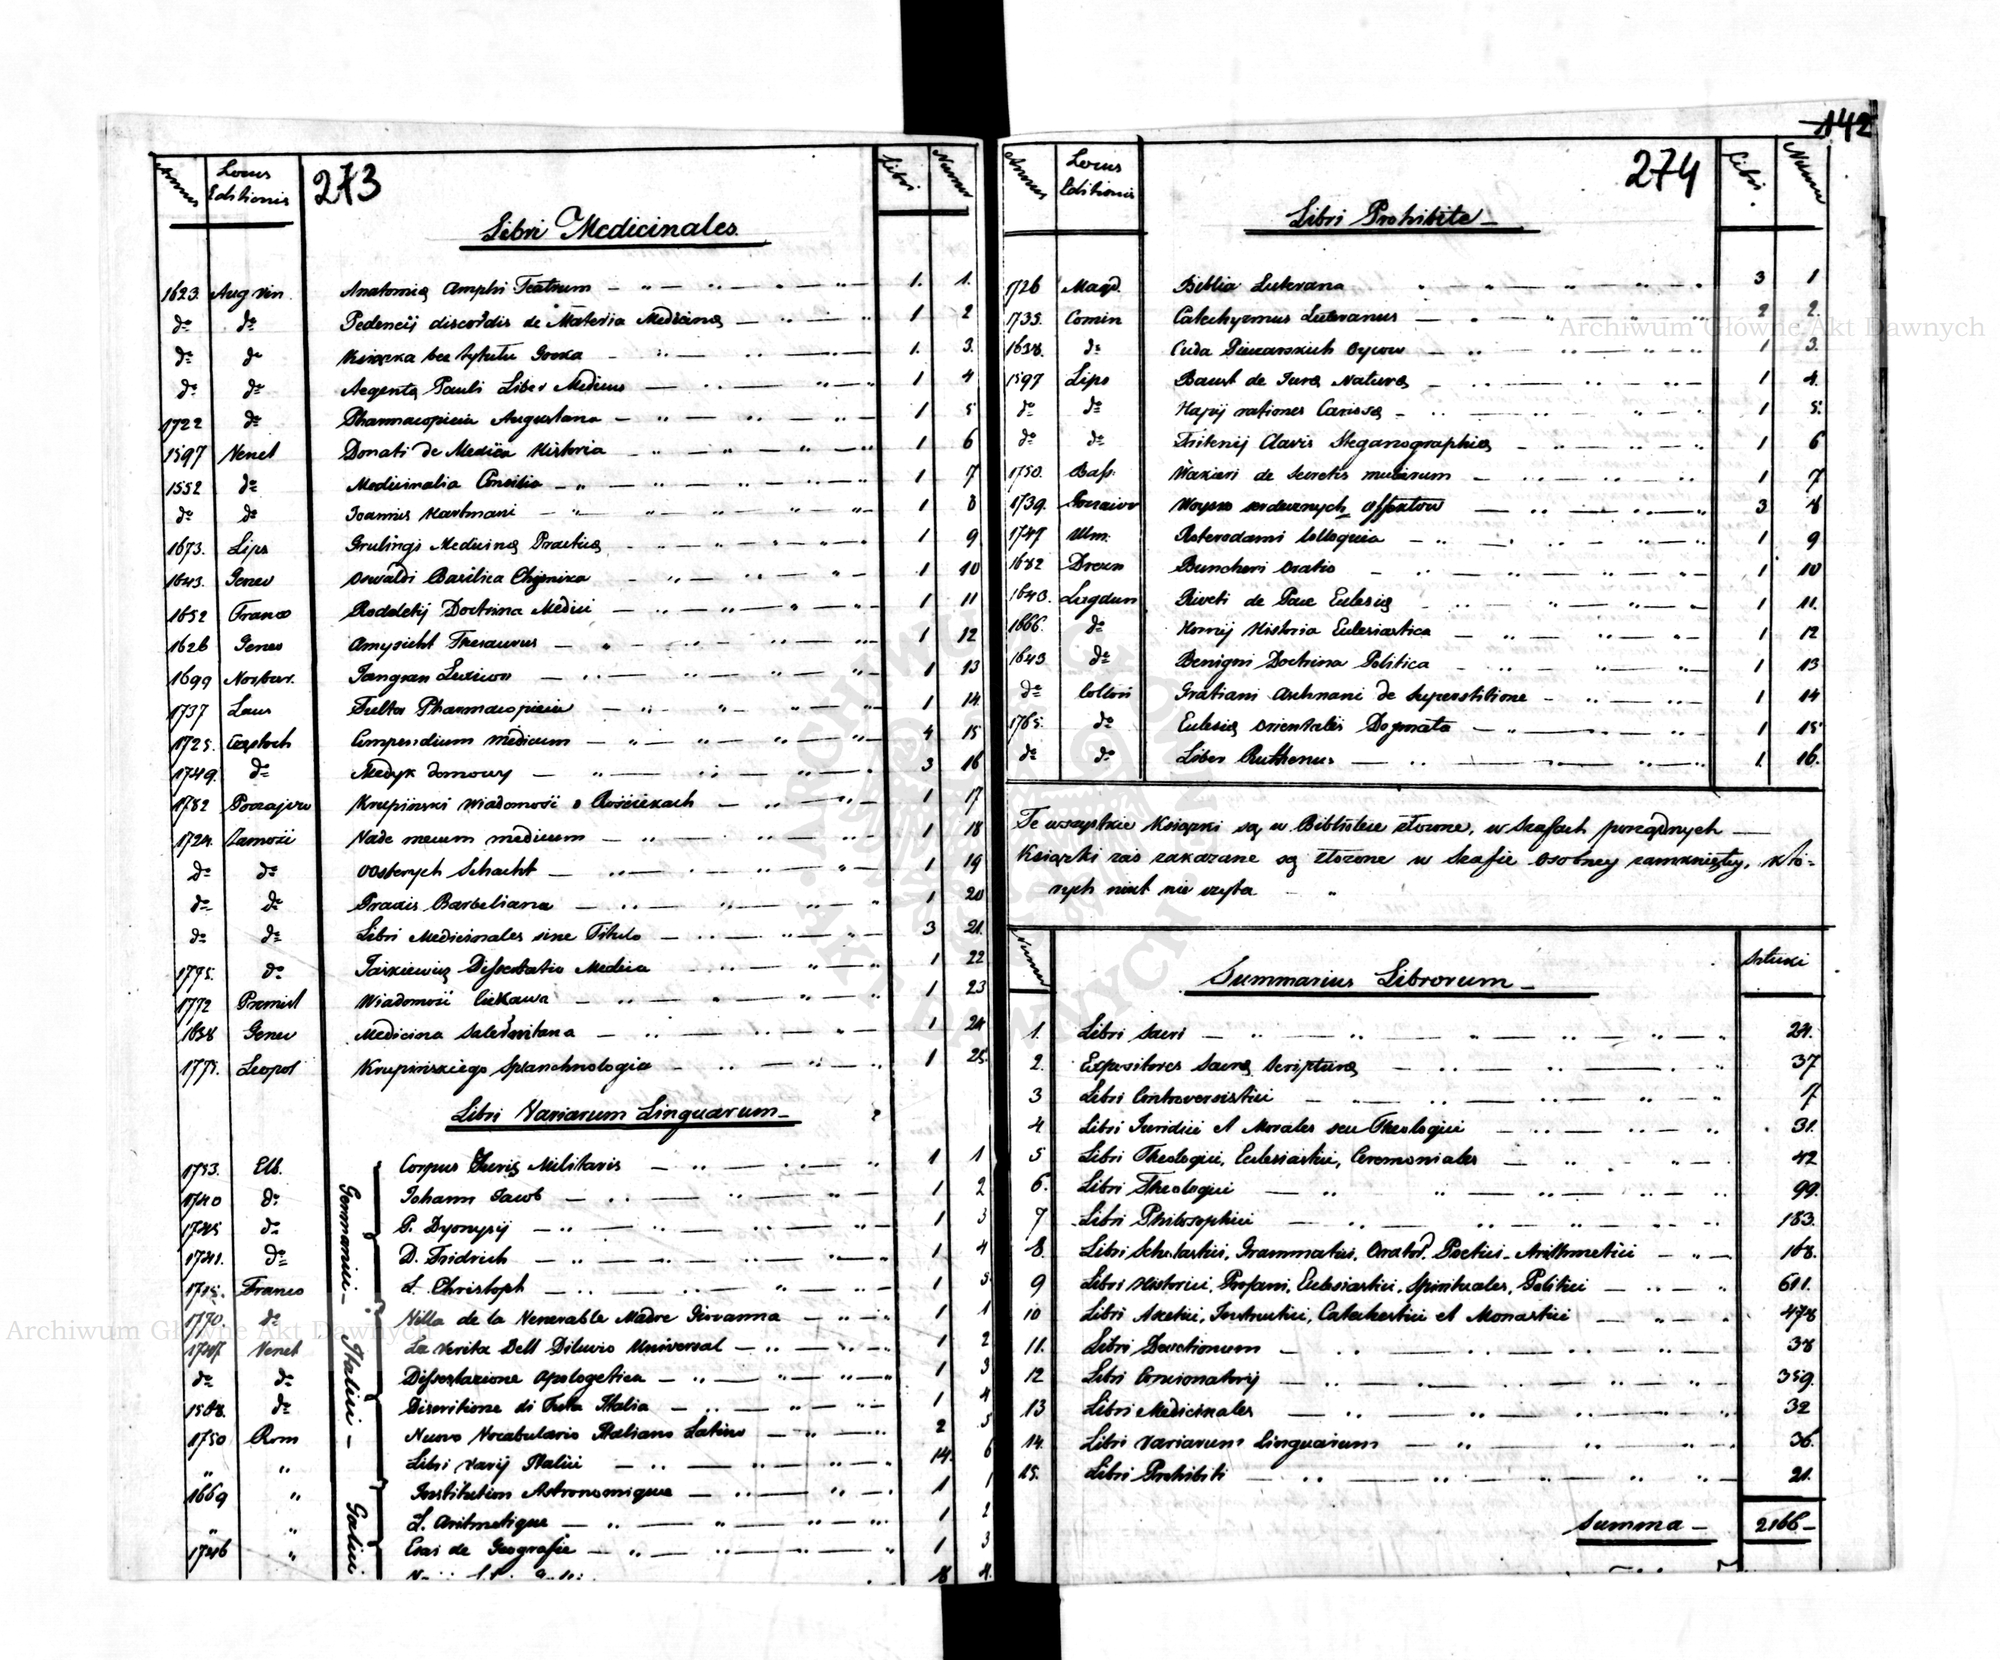 142
Annus Locus Editionis 273 Libri Numer
Libri Medicinales
1623 Aug vin. Anatomię Amphi Teatrum 1. 1.
do do Pedencij discordis de Materia Medicinę 1 2
do do Książka bez tytułu 1. 3.
do do Aegentę Pauli Liber Medicus 1 4
1722 do Pharmacopieia Augustana 1 5
1597 Venet Donati de Medica Historia 1 6
1552 do Medicinalia Consilia 1 7
do do Joannis Hartmani 1 8
1673. Lips Grulingi Medicinę Practicę 1 9
1643. Genev Oswaldi Basilica Chymica 1 10
1652 Franco Rodoletij Doctrina Medici 1 11
1626 Genev Amysicht Thesaurus 1 12
1699 Norbur. Lexicon 1 13
1737 Laus Fulta Pharmacopieia 1 14
1725. Częstoch Compendium medicum 4 15
1749. do Medyk domowy 3 16
1782 Poczajow Krupiński wiadomość o Rościekach 1 17
1724. Zamość Vade mecum medicum 1 18
do do Oosterych Schacht 1 19
do do Praxis Barbeliana 1 20
do do Libri Medicinales sine Titulo 3 21.
1775. do Dissertatio Medica 1 22
1772 Premisl Wiadomość Ciekawa 1 23
1638 Genev Medicina Salernitana 1 24
1775. Leopol Krupińskiego Splanchnologia 1 25.
Libri Variarum Linguarum
Germanici Italici Galici
1753. Elb. Corpus Juris Militaris 1 1
1740 do Johann Jacob 1 2
1745 do P. Dyonysij 1 3
1741. do D. Fridrich 1 4
1715. Franco L. Christoph 1 5.
1770. do Villa de la Venerable Madre Giovanna 1 1
1747. Venet La Verita Dell Diluvio Universal 1 2
do do Dissertazione Apologetica 1 3
1568. do Discritione di Tuta Italia 1 4
1750 Rom Nuovo Vocabulario Italiano Latino 2 5
" " Libri varij Italici 14. 6
1669 " Institution Astronomique 1 1
" " L. Aritmetique 1 2
1746 " Esai de Geografie 1 3
18 4.
Annus Locus Editionis 274 Libri. Numer
Libri Prohibite
1726 Magd. Biblia Luterana 3 1
1735. Comin Catechyzmus Luteranus 2 2.
1638. do Cuda Piekarskich Oycow 1 3.
1597 Lips Baust de Jurę Naturę 1 4.
do do Hayij rationes Carissę 1 5.
do do Tritenij Clavis Steganographię 1 6
1750. Bass. Wakieri de Secretis mulierum 1 7
1739. Woysko serdecznych Affektow 3 8
1747 Ulm. Roterodami Colloquia 1 9
1682 Drezn Buncheri Oratio 1 10
1643. Lugdun Riveti de Pace Eclesię 1 11.
1666. do Hornij Historia Eclesiastica 1 12
1643 do Benigni Doctrina Politica 1 13
do Collon Gratiani Aschnani de Superstitione 1 14
1765. do Eclesię Orientalis Dogmata 1 15
do do Liber Ruthenus 1. 16.
Te wszystkie Książki są w Bibliotece złożone, w szafach porządnych
Książki zaś zakazane są złożone w szafie osobney zamknięty, któ=
rych nikt nie czyta
Numer Summarius Librorum Sztuki
1. Libri Sacri 24.
2. Expositores Sacrę Scripturę 37
3 Libri Controversistici 7
4. Libri Juridici et Morales seu Theologici 31.
5 Libri Theologici, Eclesiastici, Ceremoniales 42
6. Libri Theologici 99.
7 Libri Philosophici 183.
8. Libri Scholastici, Grammatici, Orator. Poetici, Arithmetici 168.
9 Libri Historici, Profani, Eclesiastici, Spirituales, Politici 611.
10 Libri Ascetici, Instructivi, Catechestici et Monastici 478
11. Libri Devotionum 38
12 Libri Concionatorij 359.
13 Libri Medicinales 32
14. Libri Variarum Linguarum 36.
15. Libri Prohibiti 21.
Summa 2166
Archiwum Główne Akt Dawnych
Archiwum Główne Akt Dawnych